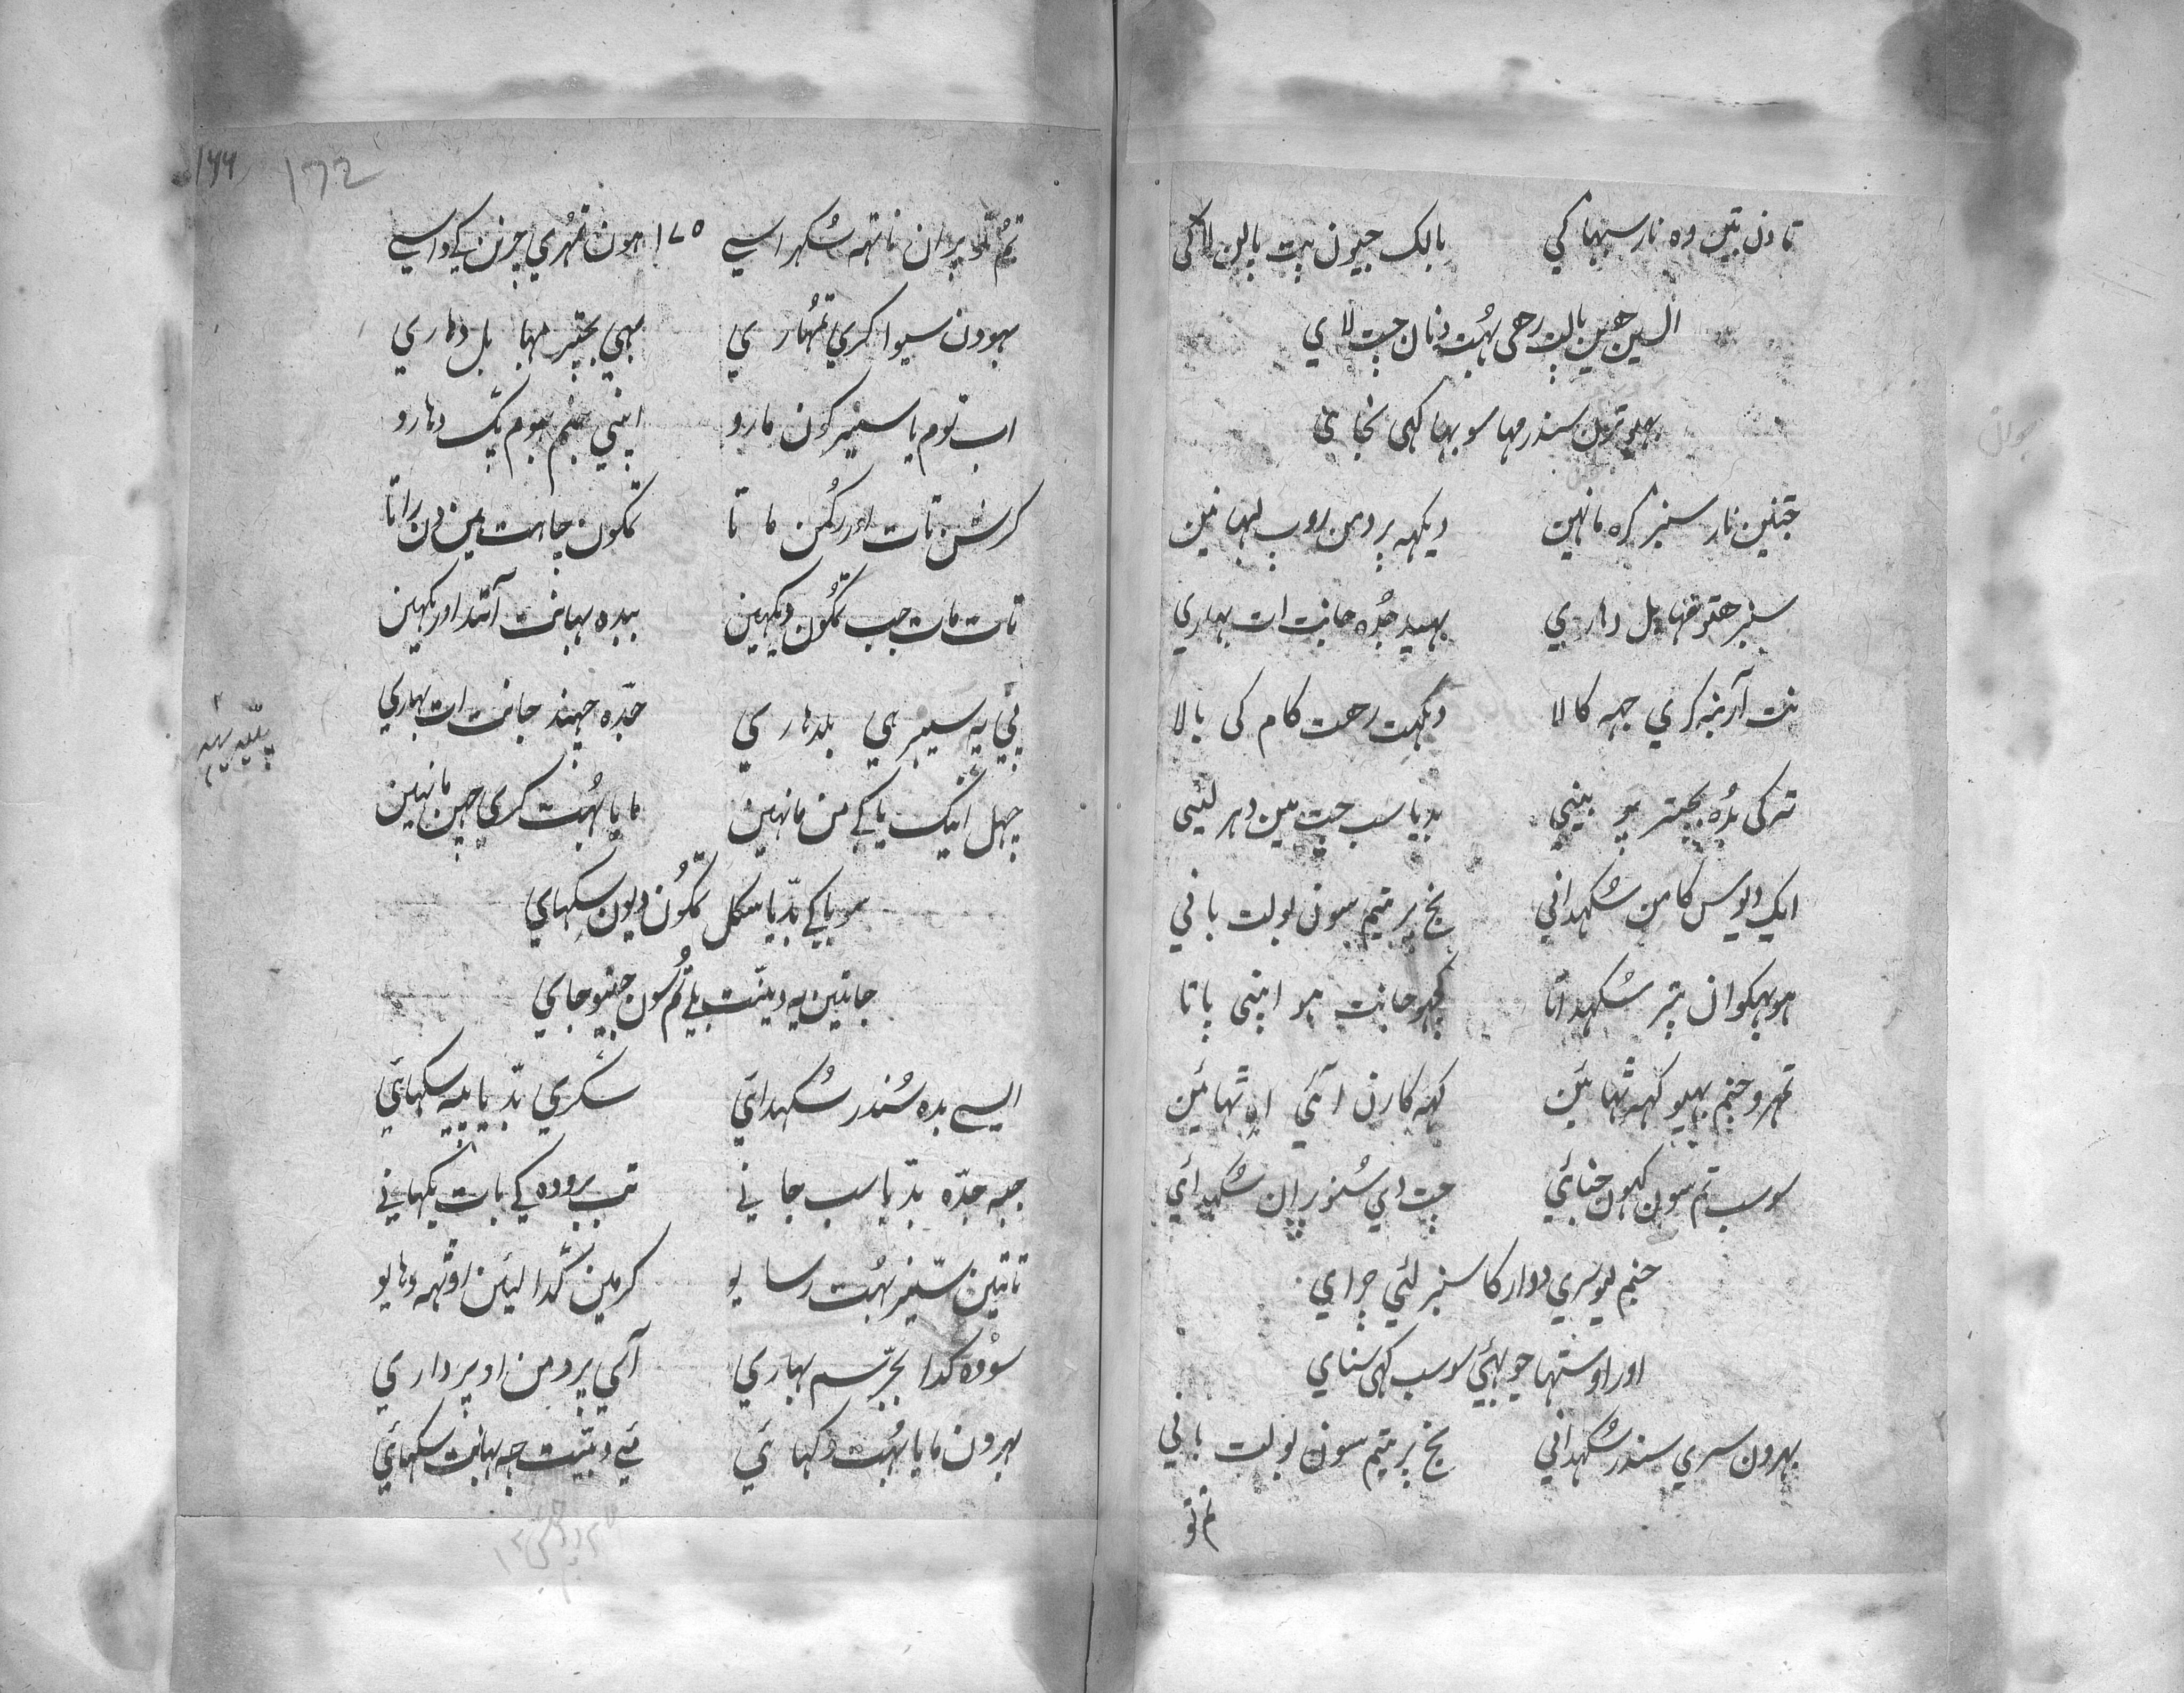 تا دن تین وہ نار سبھاکی بالک جیون پت پالن لاکی
السین ھین پالت رھی بہت دنان چت لای
بھیو ترن سندر مہا سوبھا کہی نجای
جتین نار سنبر کرہ مانہین دیکہہ پردمن روپ لبہانین
سنبر ھتو مہا بل دھاری بہید جدہ جانت ات بھاری
نت آرنبہ کری جہہ کالا دیکہت رھت کام کی بالا
ترکی بدہ بچتر ہو بینی بدیا سب چت مین دہر لینی
ایک دیوس کامن سکہدانی نج پریتم سون بولت بانی
ہو بھکوان پتر سکہداتا کچہو جانت ہو اپنی باتا
تمرو جنم بہیو کہہ ٹہائین کہہ کارن آئی اہ ٹہائین
سو سب تم سون کہون جنائی چت دی سنو پران سکہدائی
جنم لیو سری دوارکا سنبر لئی چرای
اور اوستہا جو بہئی سو سب کہی سنای
بہرون سری سندر سکہدانی نج پریتم سون بولت بانی
تم تو
۱۶۶ 172
تم تو پران ناتہہ سکہراسی ۱۷۵ ہون تمہری چرنن کے داسی
ہودن سیوا کری تمہاری بہی بچتر مہا بل دھاری
اب توم یا سنبر کون مارو اپنی جنم بہوم پک دھارو
کرشن تات اور رکمن ماتا تمکون چاہت ہین دن راتا
تات مات جب تمکون دیکہین بدہ بہانت آنند اور یکہین
پئی یہ سنبر ہی بلدھاری جدہ چہند جانت ات بہاری
چہل انیک یاکے من مانہین مایا بہت کری چہن مانہین
سو یاکے بدیا سکل تمکون دیون سکہای
جانین یہ دینت بلے تم سون جیتیو جای
ایسے بدہ سندر سکہدائی سگری بدیا پیہ سکہائی
جبہ جدہ بدیا سب جانے تب برودہ کے بات بکہانے
تاتین سنبر بہت رسایو کر مین گدا لئین اوٹہہ دھایو
سو وہ گدا بجر سم بہاری آئی پردمن اوپر داری
بہرون مایا بہت دکہائی مے دینت جہہ بہانت سکہائی